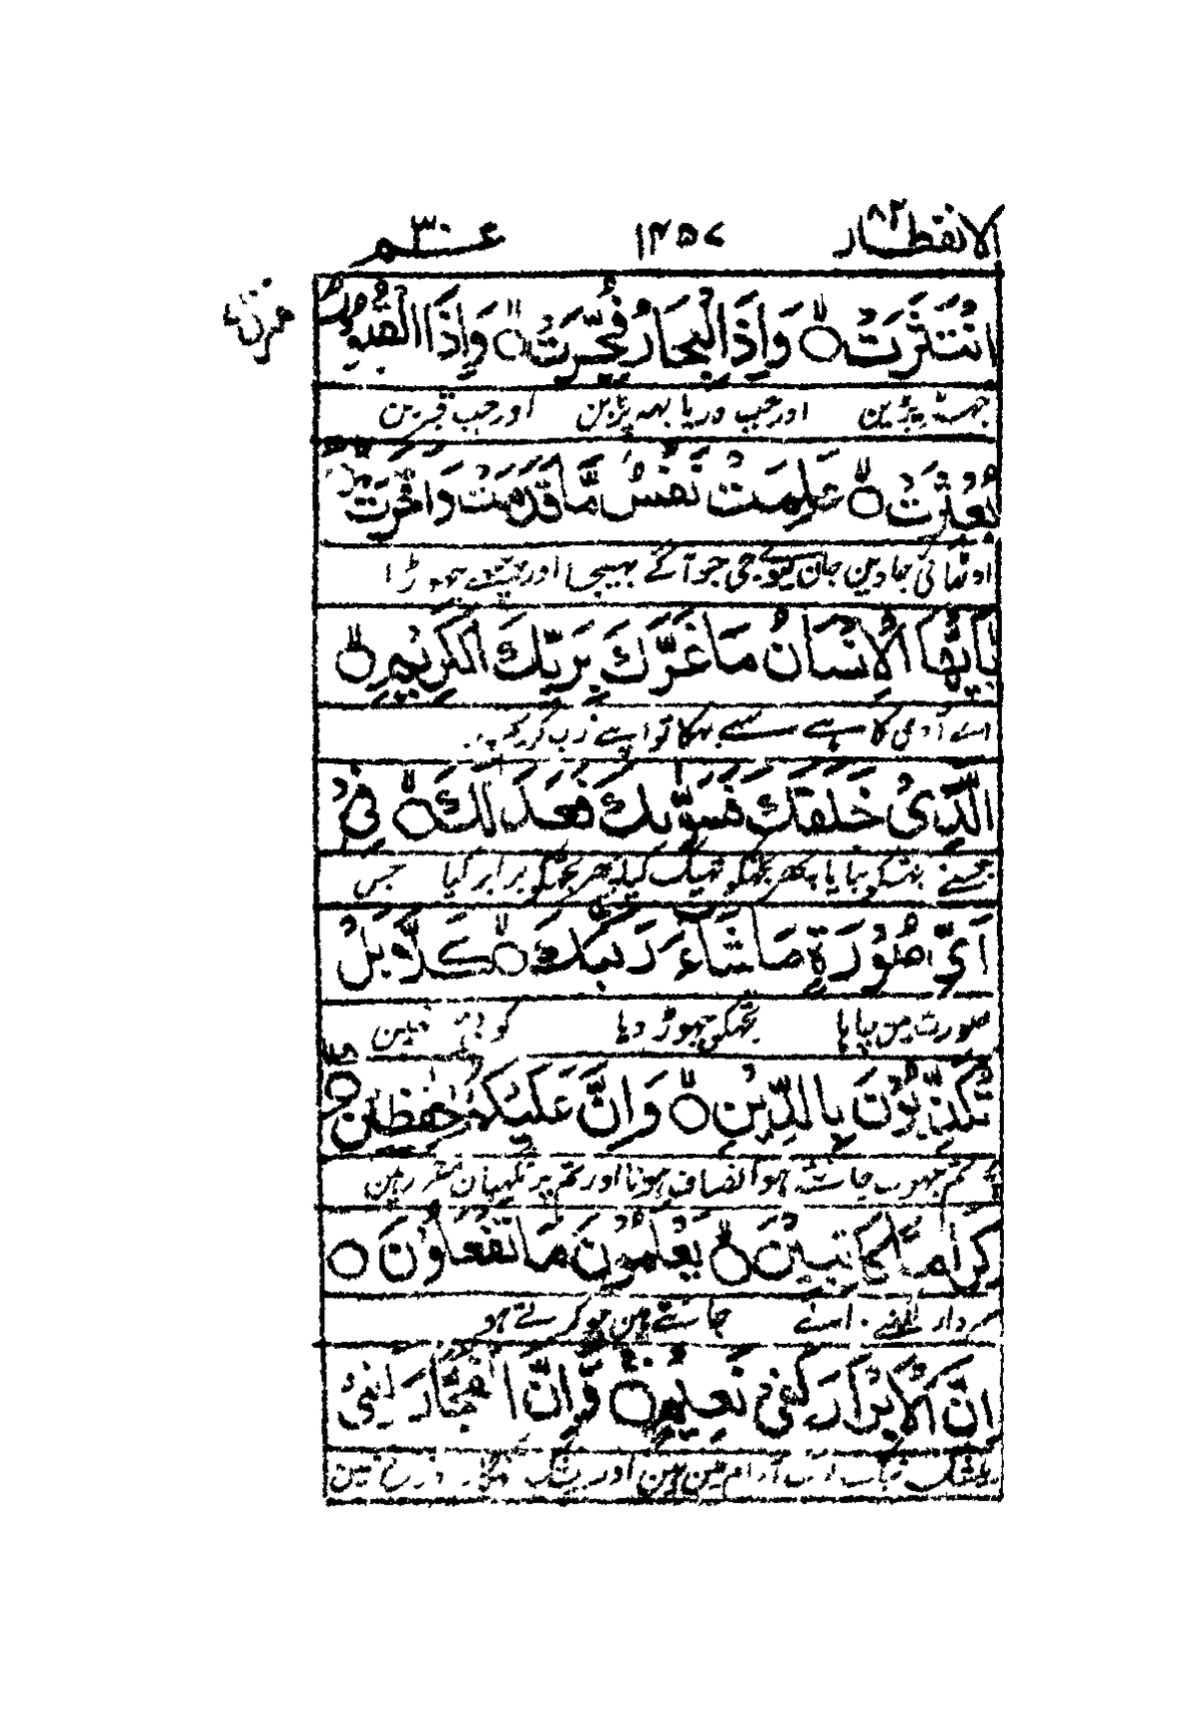 الانفطار ٨٢ ١٤٥٧ عم ٣٠
انْتَثَرَتْ ۙ وَاِذَا الْبِحَارُ فُجِّرَتْ ۙ وَاِذَا الْقُبُوْرُ
جہٹ پڑین اور جب دریا بہہ پڑین اور جب قبرین
بُعْثِرَتْ ۙ عَلِمَتْ نَفْسٌ مَّا قَدَّمَتْ وَاَخَّرَتْ
جاوین جان لیوے جی جو آگے بہیجا اور پیچھے چھوڑا
يٰۤاَيُّهَا الْاِنْسَانُ مَا غَرَّكَ بِرَبِّكَ الْكَرِيْمِ ۙ
اے آدمی کاہے سے بہکا تو اپنے رب کریم پر
الَّذِىْ خَلَقَكَ فَسَوّٰىكَ فَعَدَلَكَ ۙ فِىْۤ
جسنے تجھکو بنایا پھر تجھکو ٹھیک کیا پھر تجھکو برابر کیا جس
اَىِّ صُوْرَةٍ مَّا شَآءَ رَكَّبَكَ ۙ كَلَّا بَلْ
صورت مین چاہا تجھکو جوڑ دیا کوئی نہین
تُكَذِّبُوْنَ بِالدِّيْنِ ۙ وَاِنَّ عَلَيْكُمْ لَحٰفِظِيْنَ
تم جھوٹ جانتے ہو انصاف ہونا اور تم پر نگہبان مقرر ہین
كِرَامًا كَاتِبِيْنَ ۙ يَعْلَمُوْنَ مَا تَفْعَلُوْنَ
سردار لکھنے والے جانتے ہین جو کرتے ہو
اِنَّ الْاَبْرَارَ لَفِىْ نَعِيْمٍ ۚ وَّاِنَّ الْفُجَّارَ لَفِىْ
بیشک نیک لوگ آرام مین ہین اور بیشک گنہگار دوزخ مین